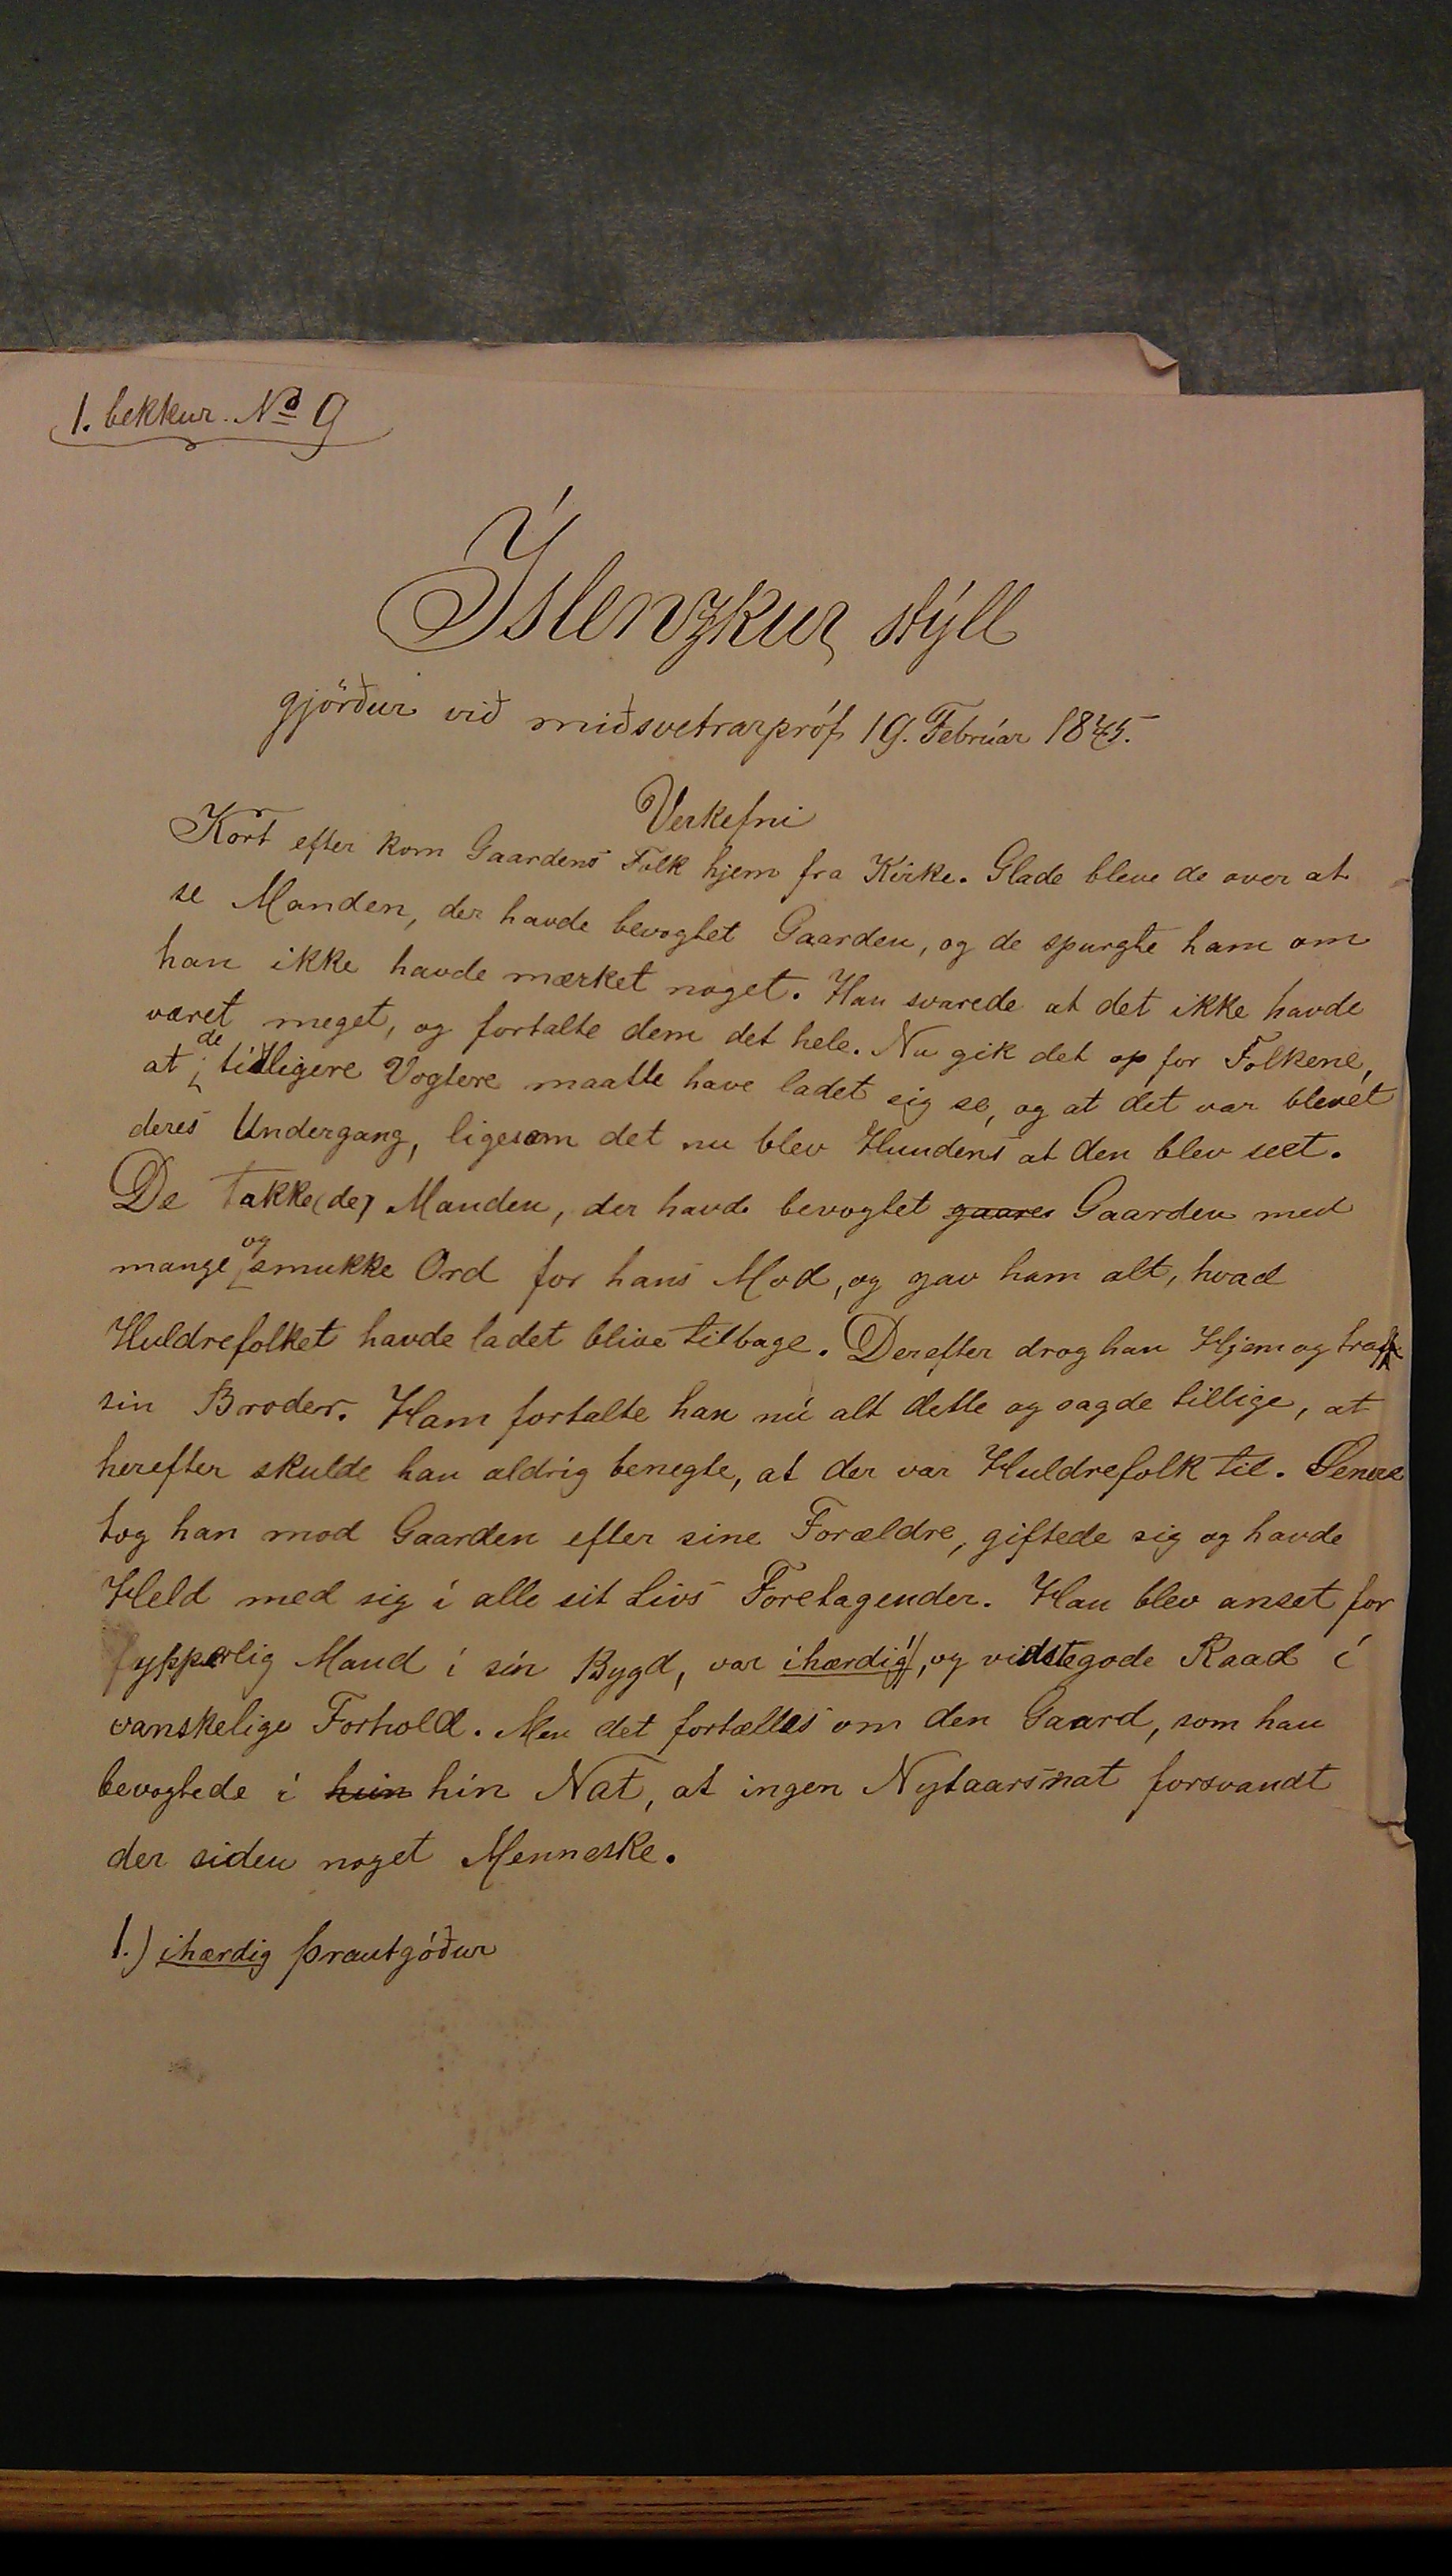 1. bekkur. No 9
Íslenzkur stýll
gjörður við miðsvetrarpróf 19. Febrúar 1875.
Verkefni
Kort efter kom Gaardens Folk hjem fra Kirke. Glade bleve de over at
se Manden, der havde bevogtet Gaarden, og de spurgte ham om
han ikke havde mærket noget. Han svarede at det ikke havde
været meget, og fortalte dem det hele. Nu gik det op for Folkene,
at de tidligere Vogtere maatte have ladet sig se, og at det var blevet
deres Undergang, ligesom det nu blev Hundens at den blev seet.
De takke(de) Manden, der havde bevogtet gaares Gaarden med
mange og smukke Ord for hans Mod, og gav ham alt, hvad
Huldrefolket havde ladet blive tilbage. Derefter drog han Hjem og traf
sin Broder. Ham fortalte han nú alt dette og sagde tillige, at
herefter skulde han aldrig benegte, at der var Huldrefolk til. Senere
tog han mod Gaarden efter sine Forældre, giftede sig og havde
Held med sig i alle sit Livs Foretagender. Han blev anset for
ypperlig Mand i sin Bygd, var ihærdig 1), og vidste gode Raad i
vanskelige Forhold. Men det fortælles om den Gaard, som han
bevogtede i hiin hin Nat, at ingen Nytaarsnat forsvandt
der siden noget Menneske.
1.) ihærdig þrautgóður